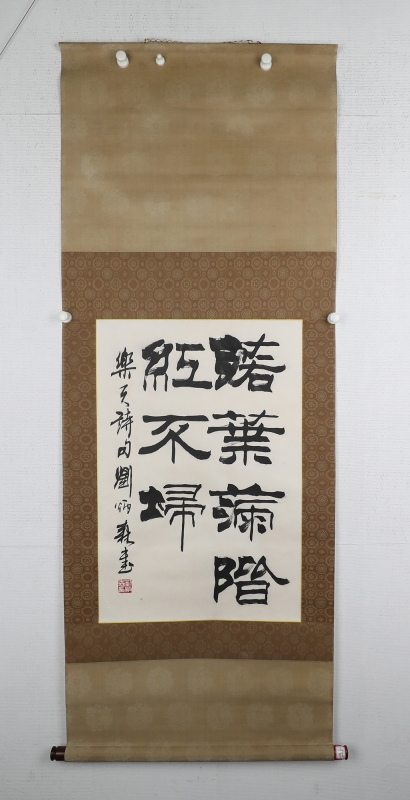 落葉滿階
紅不埽
樂天詩句劉炳森書